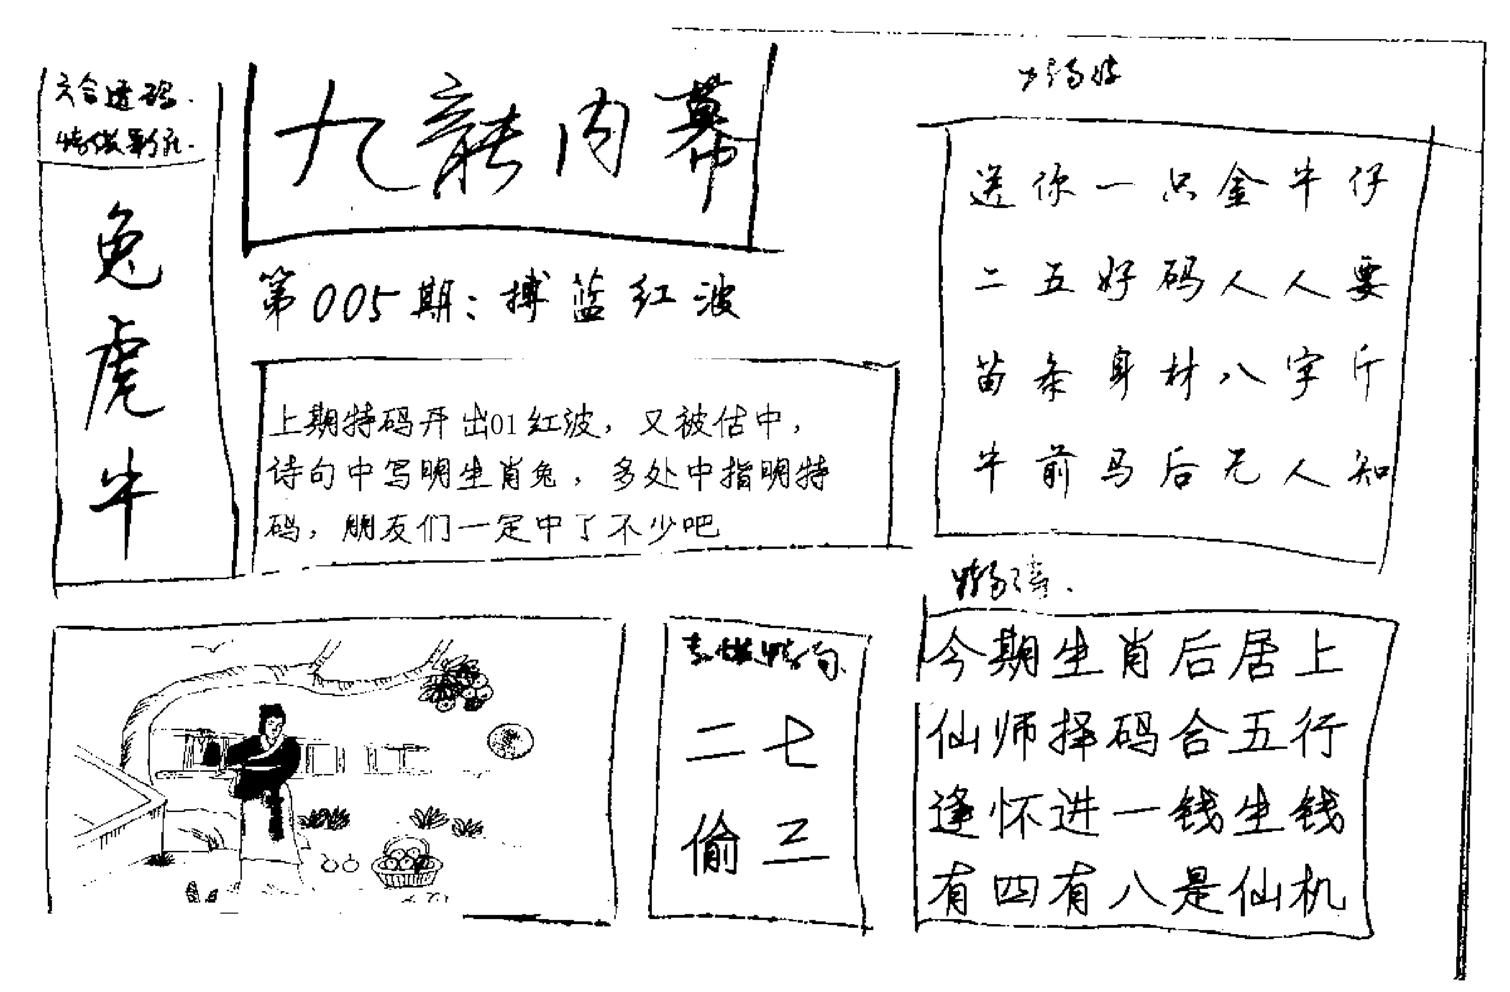 六合透码.
兔
虎
牛
九龍内幕
第005期：搏蓝红波
上期特码开出01红波，又被估中，
诗句中写明生肖兔，多处中指明特
码，朋友们一定中了不少吧
送你一只金牛仔
二五好码人人要
苗条身材八字斤
牛前马后无人知
二七
偷三
今期生肖后居上
仙师择码合五行
逢怀进一钱生钱
有四有八是仙机